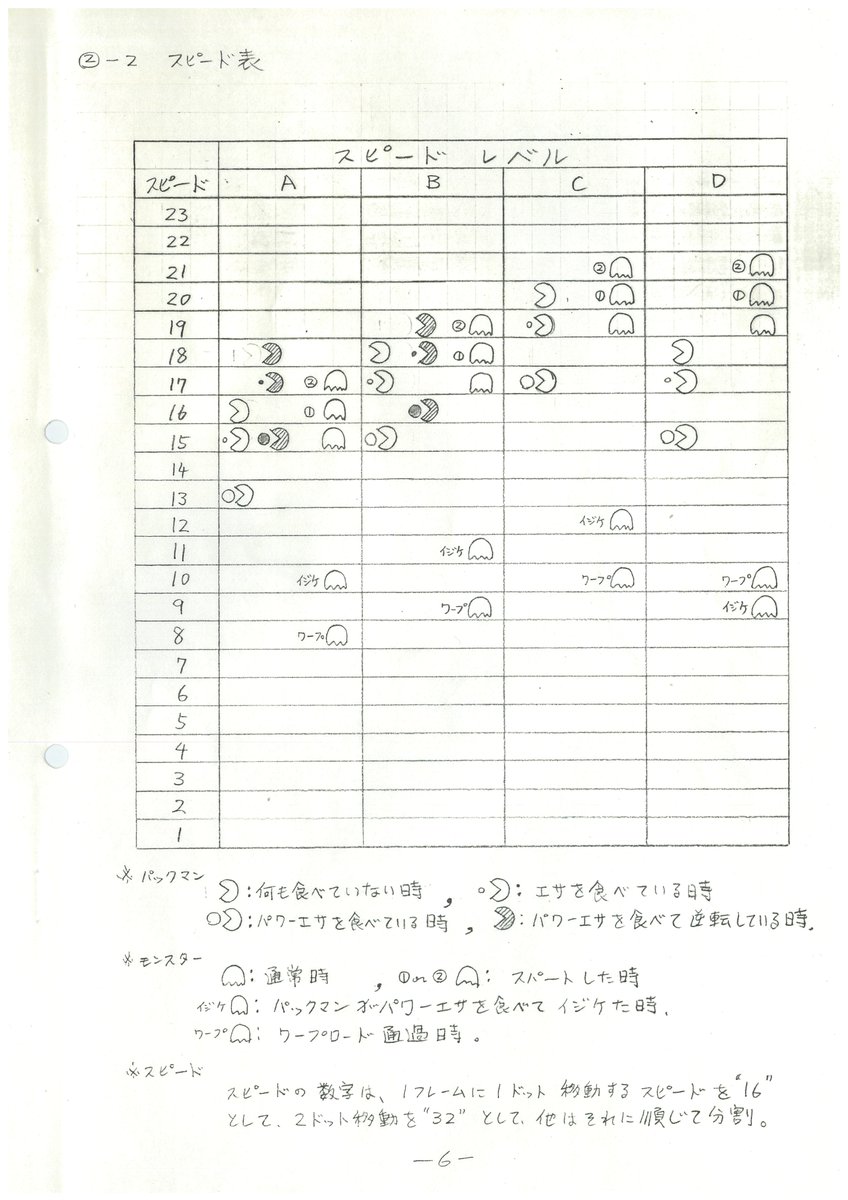 ②-2 スピード表
スピード レベル
スピード A B C D
23
22
21 ② ②
20 ① ①
19 ②
18 ①
17 ②
16 ①
15
14
13
12 イジケ
11 イジケ
10 イジケ ワープ ワープ
9 ワープ イジケ
8 ワープ
7
6
5
4
3
2
1
※パックマン
:何も食べていない時 , :エサを食べている時
:パワーエサを食べている時 , :パワーエサを食べて逆転している時.
※モンスター
:通常時 , ①or② : スパートした時
イジケ : パックマンがパワーエサを食べてイジケた時.
ワープ : ワープロード通過時。
※スピード
スピードの数字は、1フレームに1ドット移動するスピードを"16"
として、2ドット移動を"32"として、他はそれに順じて分割。
-6-